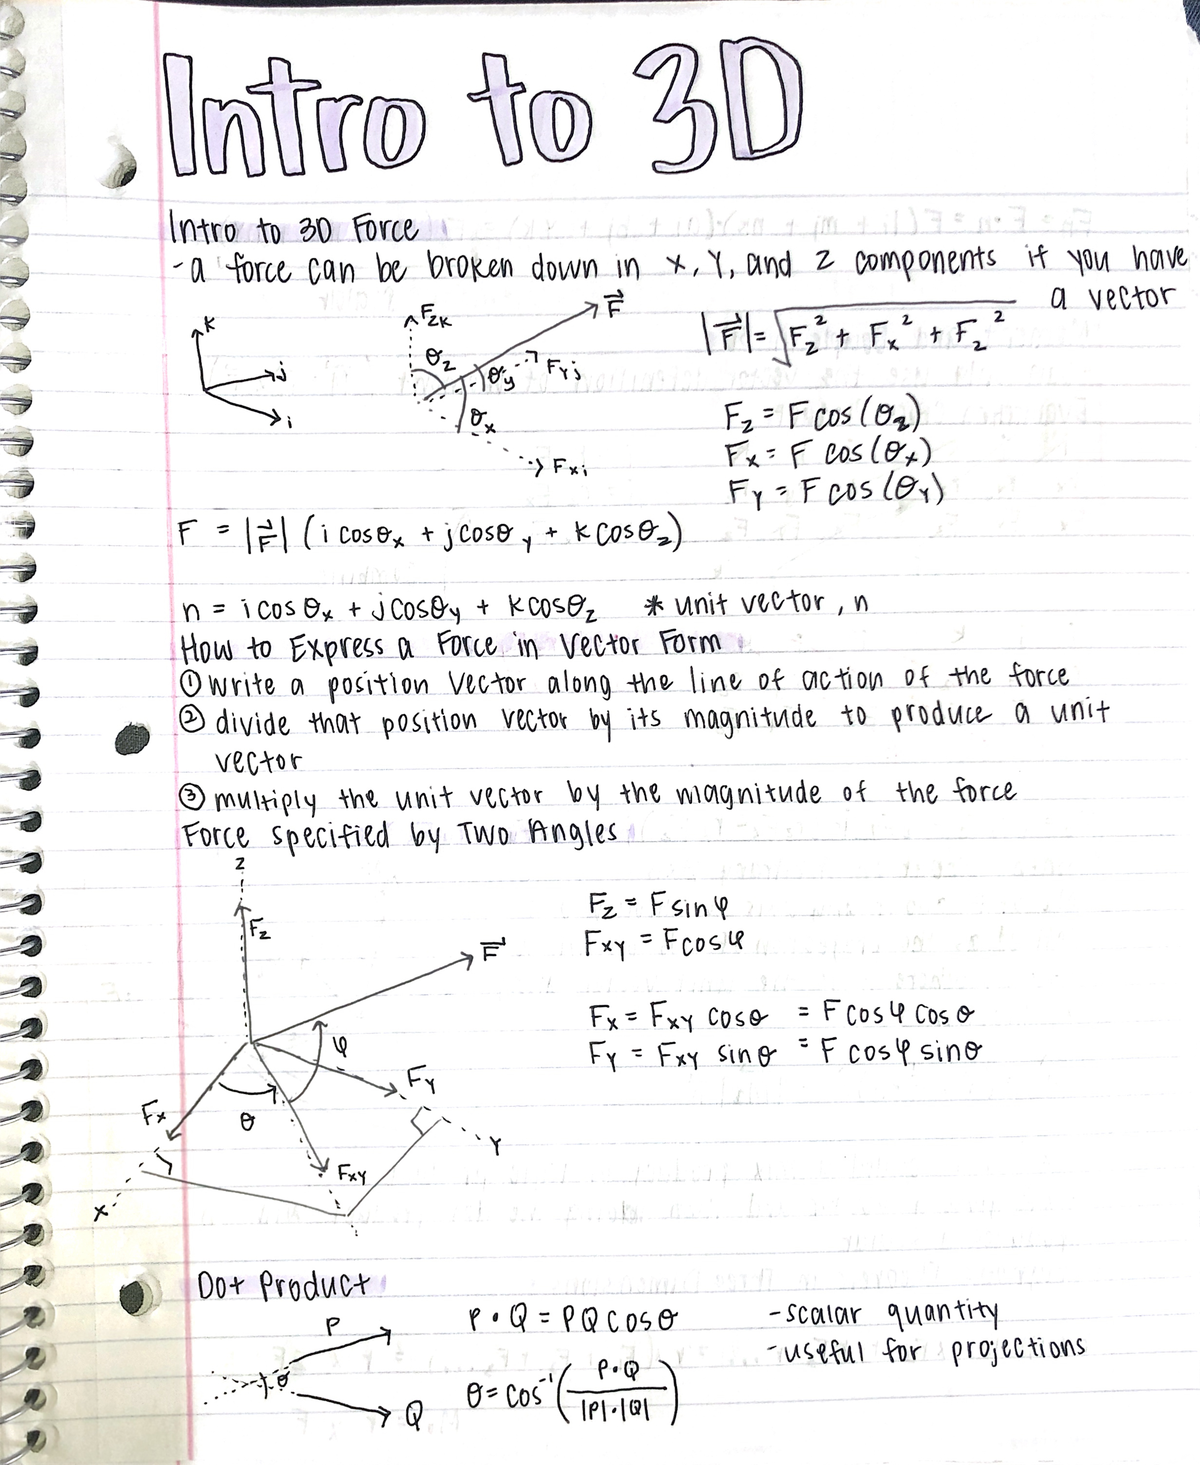 Intro to 3D
Intro to 3D Force
-a force can be broken down in x, Y, and z components if you have
a vector
K
j
i
FzK
F⃗
θz
θy
Fyj
θx
Fxi
|F⃗| = √(Fz² + Fx² + Fz²)
Fz = F cos(θz)
Fx = F cos(θx)
Fy = F cos(θy)
F = |F⃗| (i cosθx + jcosθy + k cosθz)
n = i cosθx + jcosθy + kcosθz * unit vector, n
How to Express a Force in Vector Form
① write a position vector along the line of action of the force
② divide that position vector by its magnitude to produce a unit
vector
③ multiply the unit vector by the magnitude of the force
Force specified by Two Angles
z
Fz
F⃗
φ
Fy
Fx
θ
Y
Fxy
x
Fz = F sinφ
Fxy = F cosφ
Fx = Fxy cosθ = F cosφ cosθ
Fy = Fxy sinθ = F cosφ sinθ
Dot Product
P
θ
Q
P • Q = PQ cosθ
θ = cos⁻¹(P•Q / |P|•|Q|)
-scalar quantity
-useful for projections